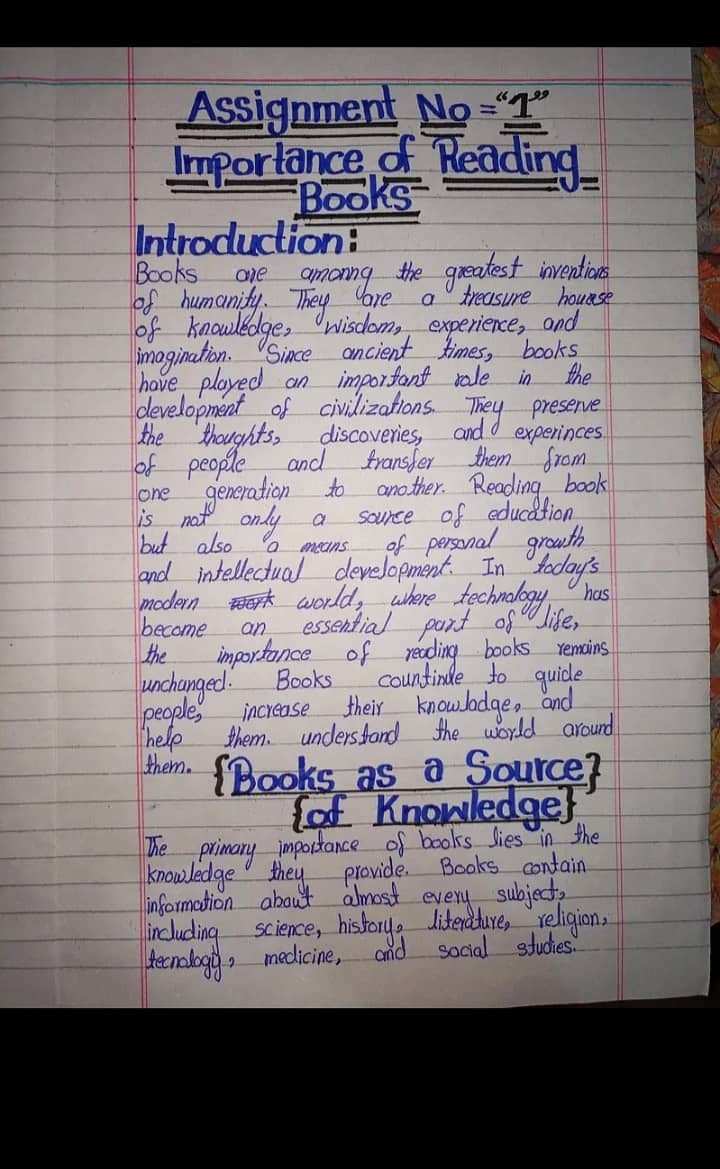 Assignment No = "1"
Importance of Reading
Books
Introduction:
Books are amonng the greatest inventions
of humanity. They are a treasure houese
of knowledge, wisdom, experience, and
imagination. Since ancient times, books
have played an important role in the
development of civilizations. They preserve
the thoughts, discoveries, and experinces
of people and transfer them from
one generation to another. Reading book
is not only a source of education
but also a means of personal growth
and intellectual development. In today's
modern work world, where technology has
become an essential part of life,
the importance of reading books remains
unchanged. Books countinde to guide
people, increase their knowladge, and
help them. understand the world around
them.
{Books as a Source}
{of Knowledge}
The primary importance of books lies in the
knowledge they provide. Books contain
information about almost every subject,
including science, history, literature, religion,
tecnology, medicine, and social studies.